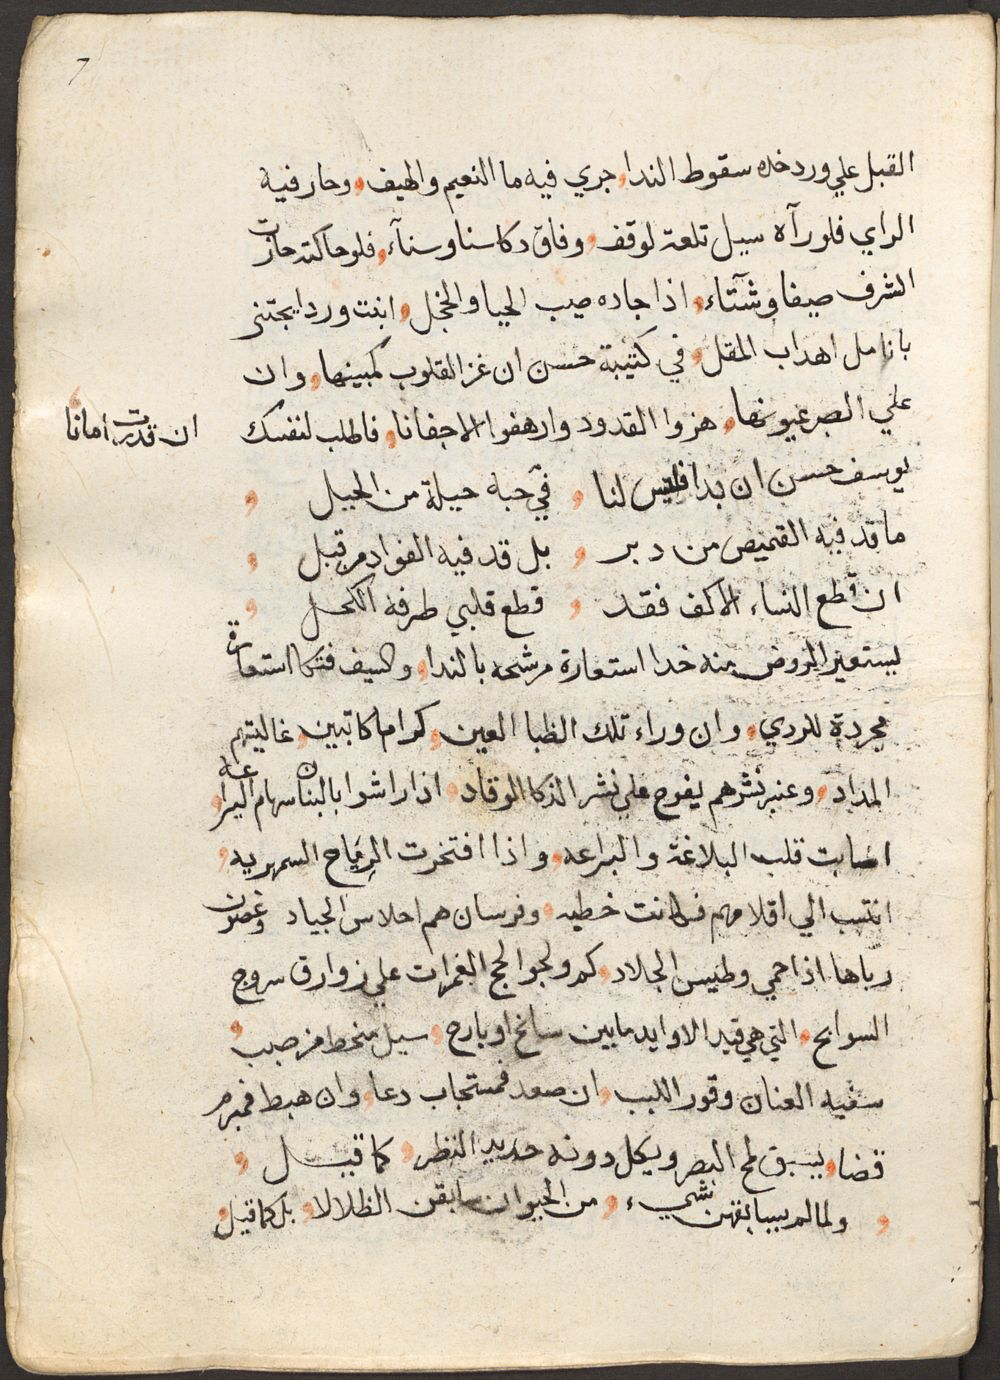 7
القبل علي ورد خده سقوط الندا، جري فيه ما النعيم والهيف، وحار فيه
الراي فلو رآه سيل تلعة لوقف، وفاق دكا سنا وسنآء، فلو حاكته حازت
الشرف صيفا وشتآء، اذا جاده صيب الحيا والخجل، انبت وردا يجتني
بانامل اهداب المقل، في كتيبة حسن ان غز القلوب كمينها، وان
علي البصر عيونها، هزوا القدود وارهفوا الاجفانا، فاطلب لنفسك
ان قدرت امانا
يوسف حسن ان بدا فليس لنا ، في حبه حيلة من الحيل ،
ما قد فيه القميص من دبر ، بل قد فيه الفواد من قبل ،
ان قطع النساء الاكف فقد ، قطع قلبي طرفه الكحل ،
يستعير الروض منه خدا استعارة مرشحه بالندا، والسيف فتكا استعارة
مجردة للردي، وان وراء تلك الظبا العين، كراما كاتبين، غاليتهم
المداد، وعنبر نشرهم يفوح علي نشر الذكا الوقاد، اذا راشوا بالبنان سهام اليراعه،
اصابت قلب البلاغة والبراعه، واذا افتخرت الرماح السمهريه،
انتسب الي اقلامهم فكانت خطيه، وفرسان هم احلاس الجياد وغصون
رباها، اذا حمي وطيس الجلاد، كم ولجوا لجج الغمرات علي زوارق سروج
السوابح، التي هي قيد الاوابد ما بين سانح او بارح، سيل منحط من صبب،
سفيه العنان وقور اللبب، ان صعد فمستجاب دعا، وان هبط فمبرم
قضا، يسبق لمح البصر ويكل دونه حديد النظر، كما قيل ،
، ولما لم يسابقهن شيء ، من الحيوان سابقن الظلالا، بل كما قيل،